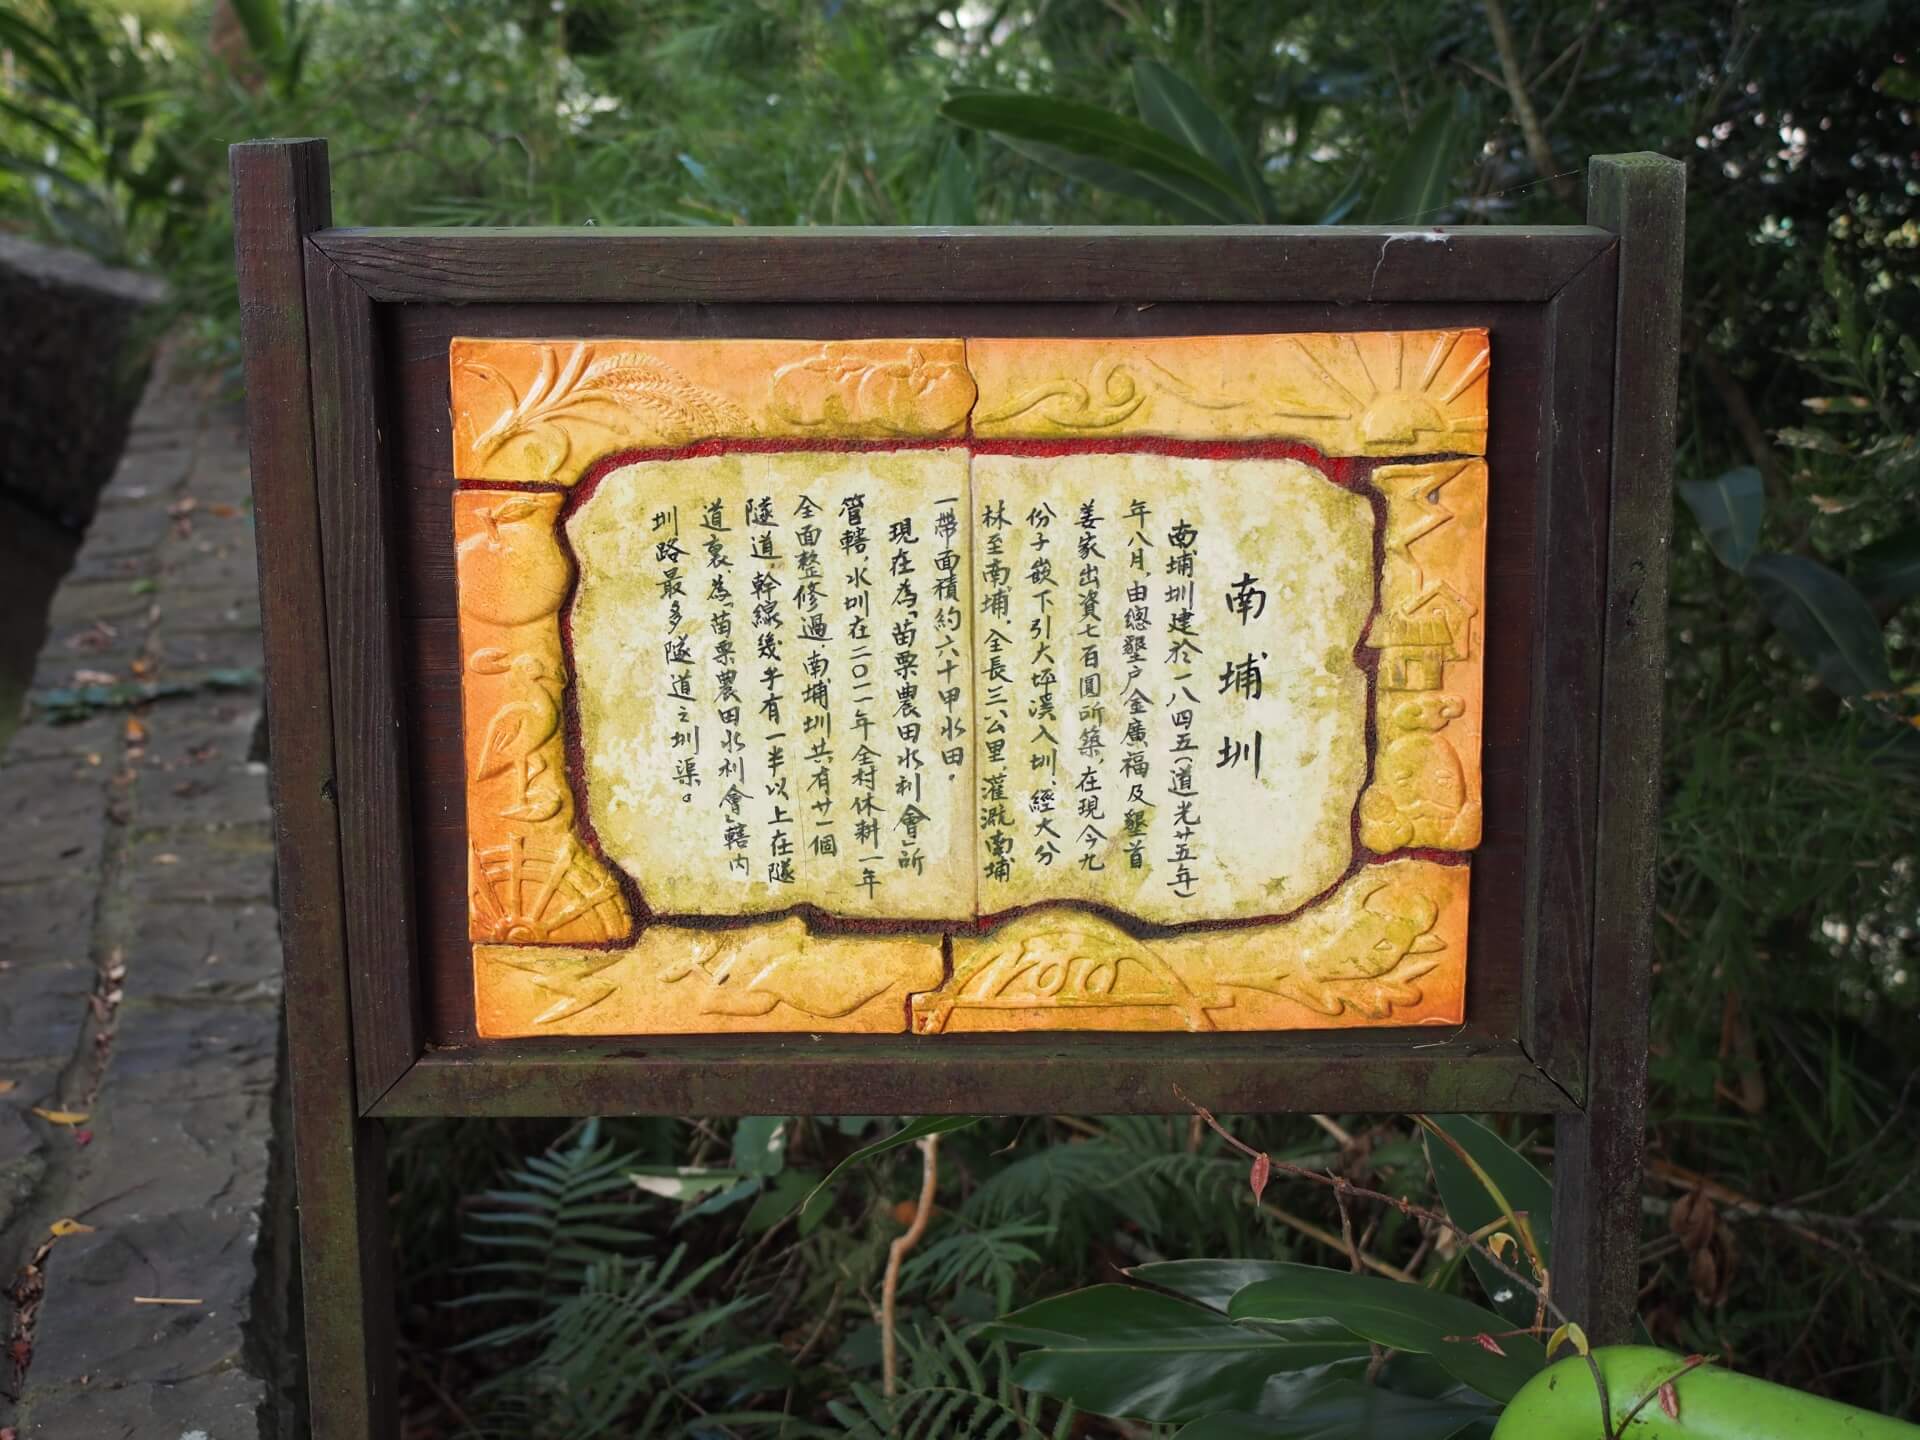 南埔圳
南埔圳建於一八四五(道光廿五年)
年八月，由總墾戶金廣福及墾首
姜家出資七百圓所築，在現今九
份子崁下引大坪溪入圳，經大分
林至南埔，全長三公里，灌溉南埔
一帶面積約六十甲水田。
現在為「苗栗農田水利會」所
管轄，水圳在二〇一一年全村休耕一年
全面整修過，南埔圳共有廿一個
隧道，幹線幾乎有一半以上在隧
道裏，為「苗栗農田水利會」轄內
圳路最多隧道之圳渠。